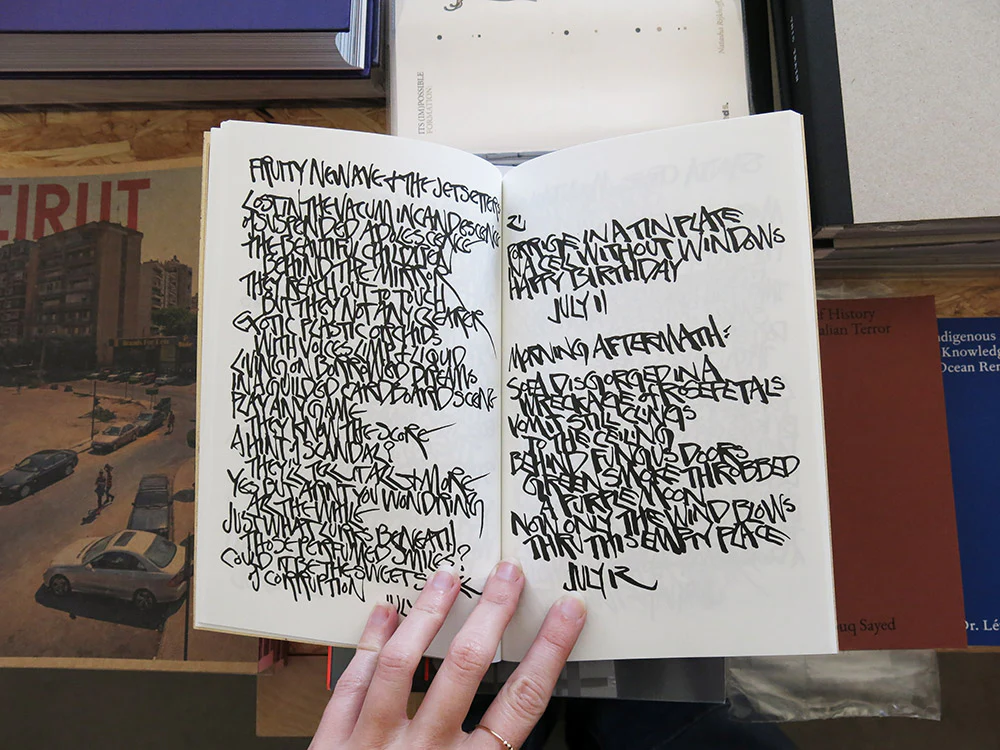 FRUITY NEWAVE + THE JETSETTERS
LOST IN THE VACUUM INCANDESCENCE
of SUSPENDED ADOLESCENCE
THE BEAUTIFUL CHILDREN
BEHIND THE MIRROR
THEY REACH OUT TO TOUCH
BUT THEY'RE NOT ANY CLEARER
EXOTIC PLASTIC ORCHIDS
WITH VOICES
LIVING ON BORROWED DREAMS
IN A GUILDED CARDBOARD SCENE
PLAY ANY GAME
THEY KNOW THE SCORE
A HINT of SCANDAL?
THEY'LL TELL IT ALL + MORE
YES, BUT AIN'T YOU WONDRING
ALL THE WHILE
JUST WHAT LURKS BENEATH
THOSE PERFUMED SMILES?
COULD IT BE THE SWEET
of CORRUPTION
JULY
21
PORRIGE IN A TIN PLATE
IN A CELL WITHOUT WINDOWS
HAPPY BIRTHDAY
JULY 11
MORNING AFTERMATH:
SOFA DISGORGED IN A
WRECKAGE of ROSEPETALS
VOMIT STILL CLINGS
TO THE CEILING
BEHIND FUNGUS DOORS
GREEN SMOKE THROBBED
A PURPLE MOON
NOW ONLY THE WIND BLOWS
THRU THIS EMPTY PLACE
JULY 12
EIRUT
ITS (IM)POSSIBLE
FORMATION
History
alian Terror
uq Sayed
ndigenous
Knowledg
Ocean Rem
Dr. Lé